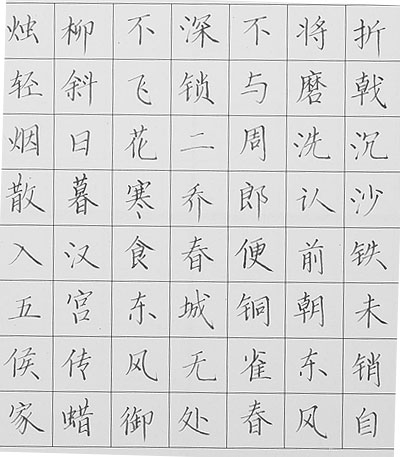 折戟沉沙铁未销自
将磨洗认前朝东风
不与周郎便铜雀春
深锁二乔春城无处
不飞花寒食东风御
柳斜日暮汉宫传蜡
烛轻烟散入五侯家